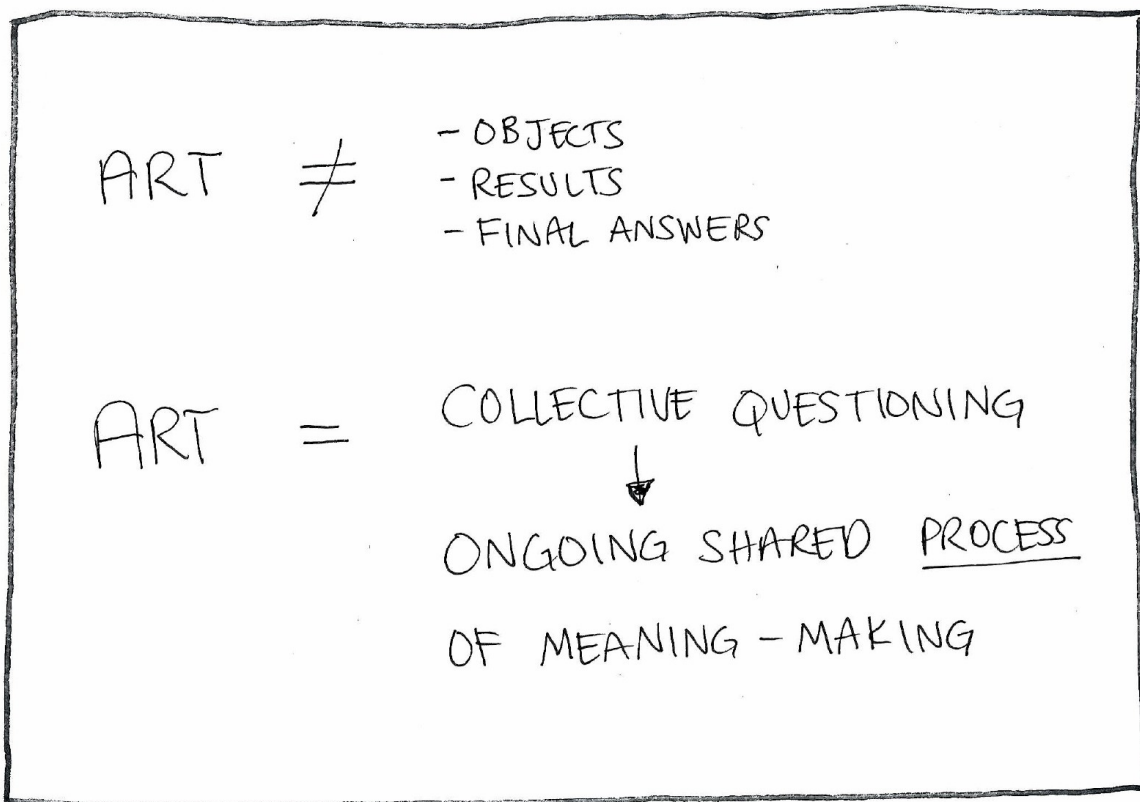 ART ≠ - OBJECTS
- RESULTS
- FINAL ANSWERS
ART = COLLECTIVE QUESTIONING
↓
ONGOING SHARED PROCESS
OF MEANING - MAKING